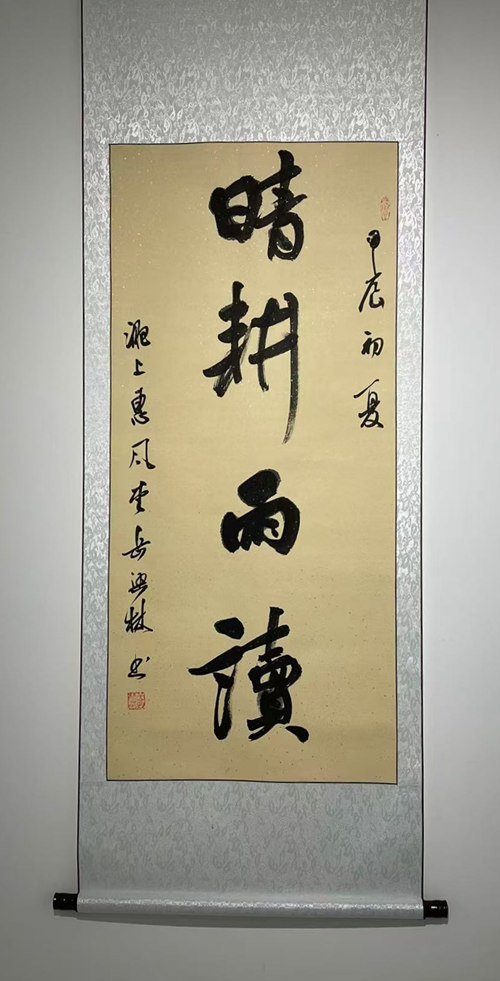 甲辰初夏
晴耕雨讀
上惠風堂岳興林書